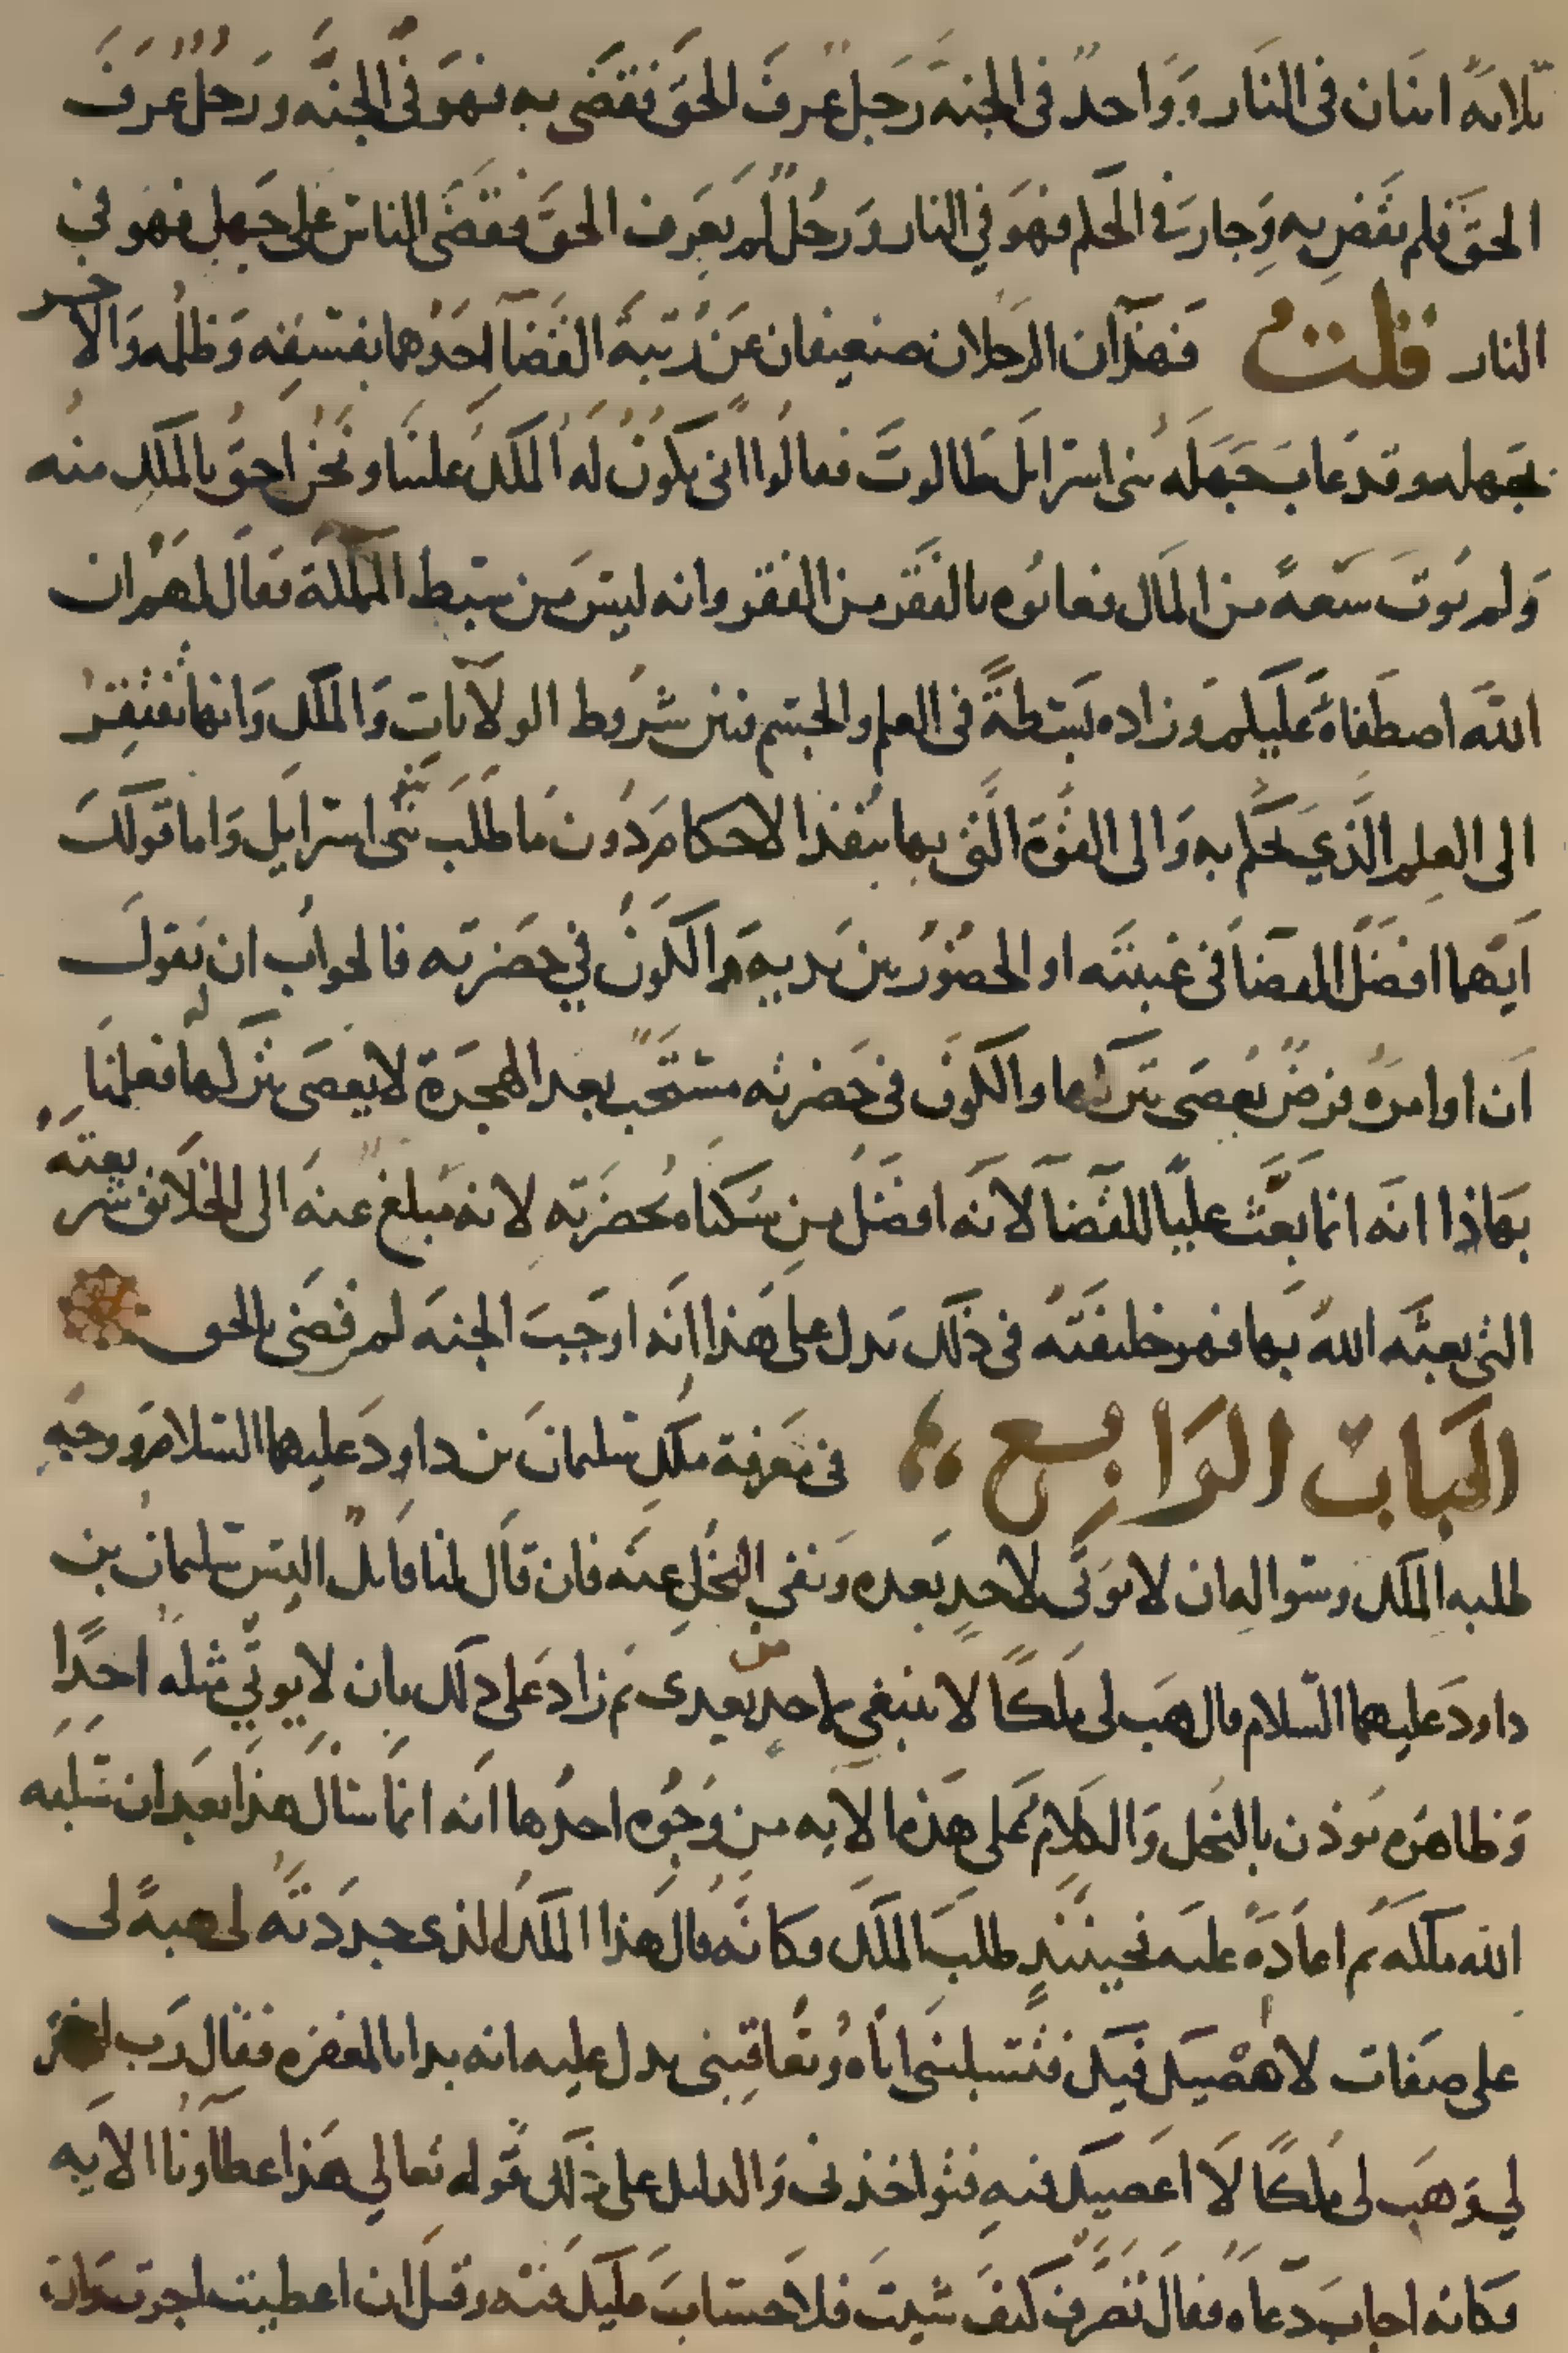 ثلاثة اثنان في النار وَوَاحدٌ في الجنه رَجل عرفَ الحق فقضى به فهوَ في الجنّه ورَجُلٌ عرفَ
الحقَّ فلم يقضِ به وَجار في الحكم فهوَ في النار وَرجُلٌ لم يعرف الحقَّ فقضَى الناس على جَهلٍ فهو في
النار قلت فَهذان الرجلان ضعيفان عَن رُتبة القضآ احَدُهما بفسقه وَظلمه وَالاخر
بجهله وقد عابَ جَهَلَه بني اسرايل طالوتَ فقالُوا انى يكونُ له الملكُ علينا ونحنُ احقُّ بالملك منه
وَلم يُوتَ سَعةً من المال فعابُوه بالفقر من الفقر وانه ليسَ من سبط المملكة فقال لهم ان
اللهَ اصطفاهُ عَليكم وَزاده بَسْطةً في العلم والجسم فبين شرُوط الولايات وَالملك وَانها تفتقِرُ
الى العِلم الَّذي يَحكم به وَالى القوَّة الَّتى بها ينفذ الاحكام دُونَ مَا طلبَ بنى اسرايل وَاما قولكَ
ايَّهما افضَل القضآ في غيبته او الحضُورُ بين يديه وَالكَونُ في حضرته فالجوابُ ان نقولَ
ان اوامرهُ فرضٌ يُعصَى بتركها والكون في حضرته مستحَب بعد الهجرَة لا يعصَى بتركها فعلمنَا
بهاذا انه انما بعَث عليًّا للقضآ لانه افضَل من سُكناه بحضرَته لانه مُبلغ عنه الى الخلائق شريعتَهُ
التى بعثه اللهُ بها فهو خليفَتُه في ذلك يدل على هذا انه اوجَبَ الجنه لمن قضَى بالحق
البَابُ الرَابع في مَعرفة ملكِ سليمانَ بن داودَ عليهما السلام ووجهِ
طلبه الملك وسواله ان لا يوتَى لاحدٍ بَعده وَنفي البُخل عنه فان قال لنا قايلٌ اليسَ سليمانُ بن
داودَ عليهما السّلام قال هَب لى مُلكًا لا ينبغي لاحدٍ من بعدى ثم زادَ على ذلك بان لا يوتي مثلهُ احدًا
وَظاهرَه يوذن بالبخل وَالكلامُ على هذه الآيه من وُجُوه احدُها انه انما سَال هذا بَعد ان سَلبه
الله ملكه ثم اعادَهُ عليه فحينئذٍ طلبَ الملك فكانَّه قال هذا الملكُ الذى جددتَّه لى هبهُ لى
على صفات لا اعصيك فيك فتسلبنى اياهُ وتعَاقبنى يدل عليه انه بدا بالمغفره فقال رَب اغفر
لي وَهَب لى مُلكًا لَا اعصيك فيهِ فتواخذنى وَالدليل على ذلك قوله تعالي هذا عطآونا الايه
فكانه اجابَ دعآه فقال تَصَرَّف كيفَ شيتَ فلا حسابَ عليك فيه وقيل ان اعطيت اجرت وان